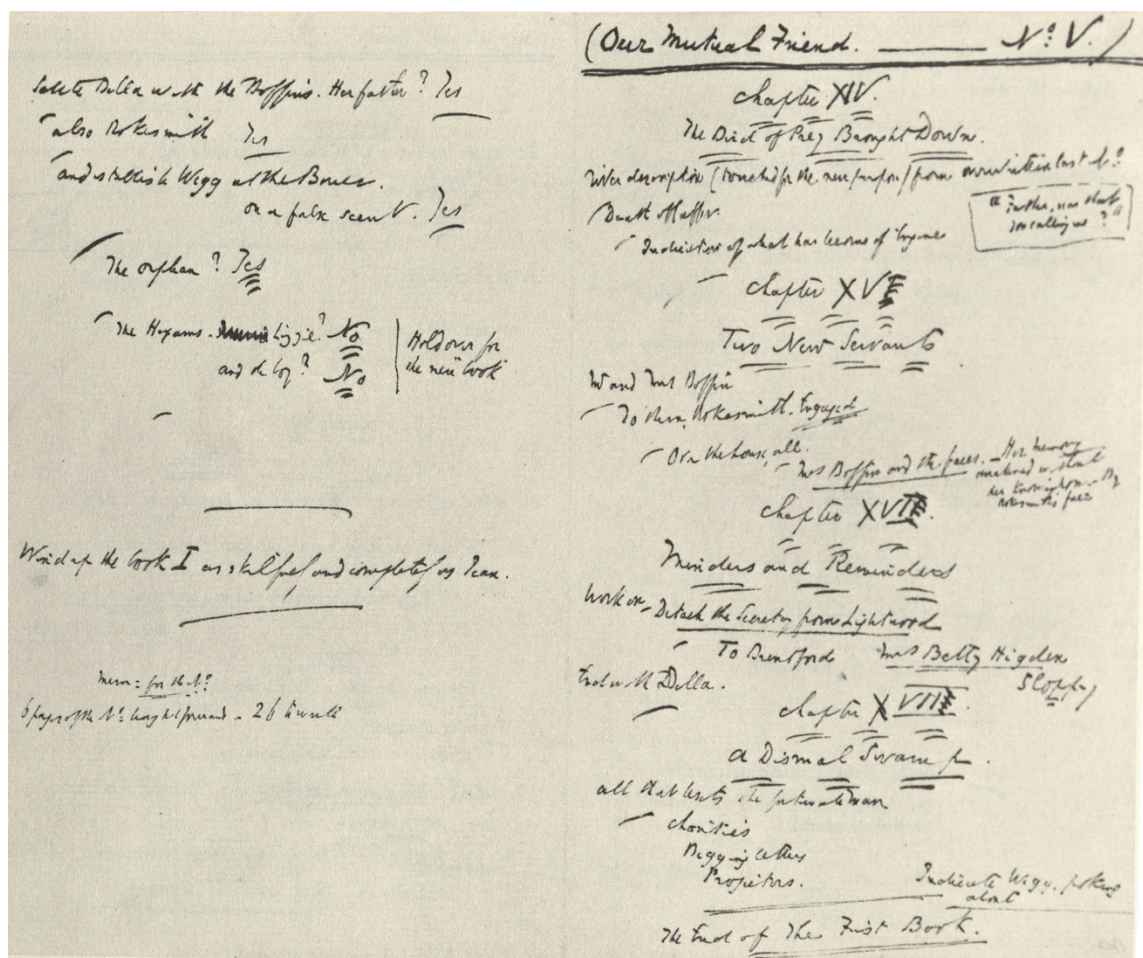 Settle Bella with the Boffins. Her father? Yes
also Rokesmith Yes
and establish Wegg at the Bower.
on a false scent. Yes
The orphan? Yes
The Hexams. Lizzie? No
and the boy? No
Hold over for
the new book
Wind up the book I as skilfully and completely as I can.
Mem: for the No.
6 pages of the No. brought forward - 26 to write
(Our Mutual Friend. ——— No. V.)
Chapter XIV.
The Bird of Prey Brought Down.
River description (touched for the new purpose) from overwritten last No.
Death of Gaffer.
"Father, was that
you calling me?"
Indication of what has become of Eugene
Chapter XV
Two New Servants
Mr and Mrs Boffin
To them, Rokesmith. Engaged
Over the house, all.
Mrs Boffin and the faces. — Her memory
her knowing him - By
Rokesmith's face
Chapter XVI.
Minders and Reminders
Work on - Detach the Secretary from Lightwood
To Brentford Mrs Betty Higden
Sloppy
End with Bella.
Chapter XVII.
A Dismal Swamp.
All that besets the fortunate man
Charities
Begging letters
Projectors.
Indicate Wegg, poking
about
The End of The First Book.